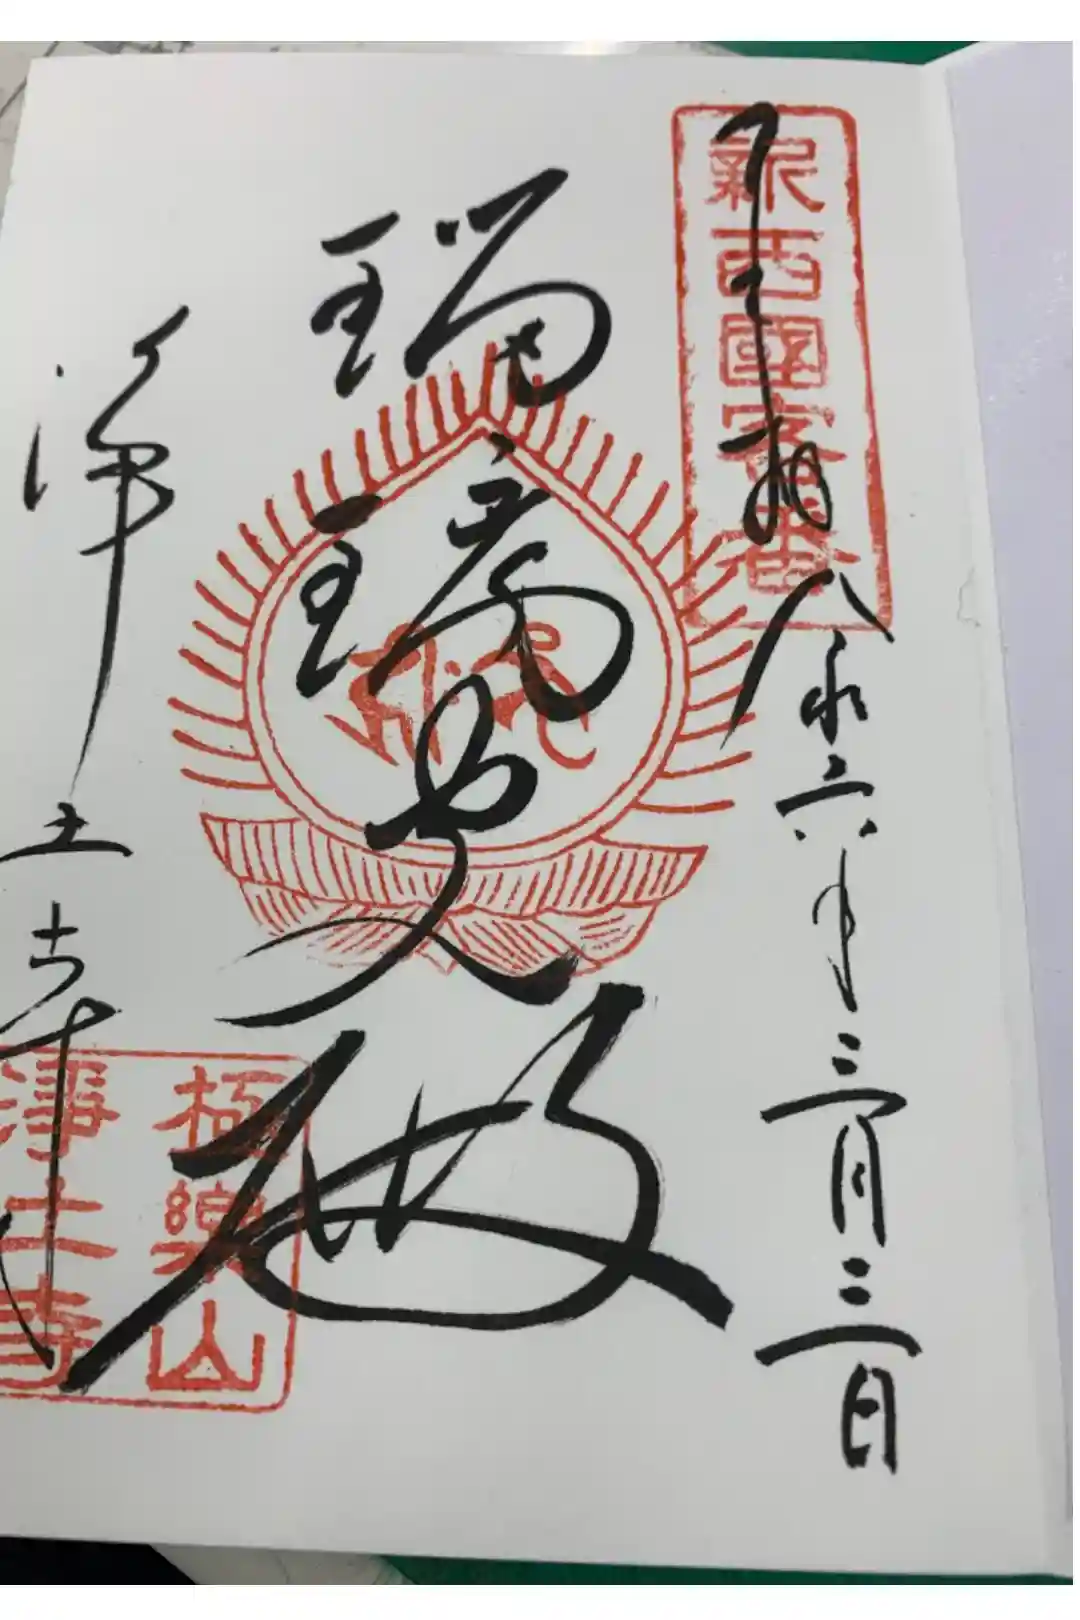 新西國客番
奉拝
令和六年三月三日
瑠璃光殿
浄土寺
極樂山
淨土寺